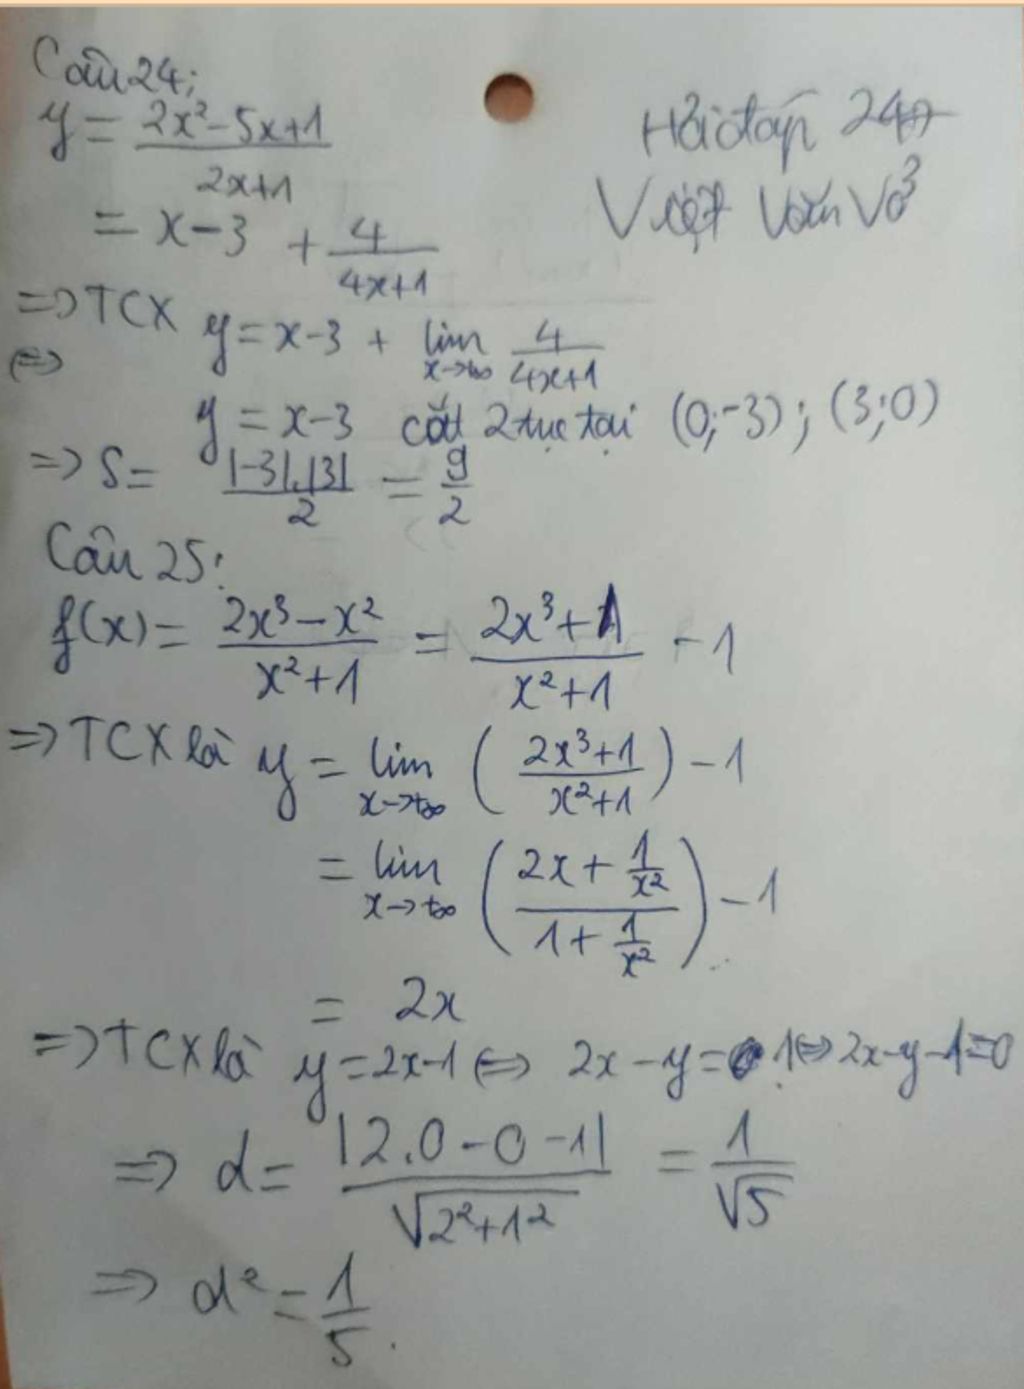 Câu 24:
y = \frac{2x²-5x+1}{2x+1}
Hỏi đáp 247
= x-3 + \frac{4}{4x+1}
Việt Văn Võ
=> TCX y = x-3 + lim_{x->+∞} \frac{4}{4x+1}
(=>
y = x-3 cắt 2 trục tại (0;-3); (3;0)
=> S = \frac{|-3|.|3|}{2} = \frac{9}{2}
Câu 25:
f(x) = \frac{2x³-x²}{x²+1} = \frac{2x³+1}{x²+1} - 1
=> TCX là y = lim_{x->+∞} (\frac{2x³+1}{x²+1}) - 1
= lim_{x->+∞} (\frac{2x+\frac{1}{x²}}{1+\frac{1}{x²}}) - 1
= 2x
=> TCX là y = 2x-1 <=> 2x-y = 1 <=> 2x-y-1=0
=> d = \frac{|2.0-0-1|}{\sqrt{2²+1²}} = \frac{1}{\sqrt{5}}
=> d² = \frac{1}{5}.